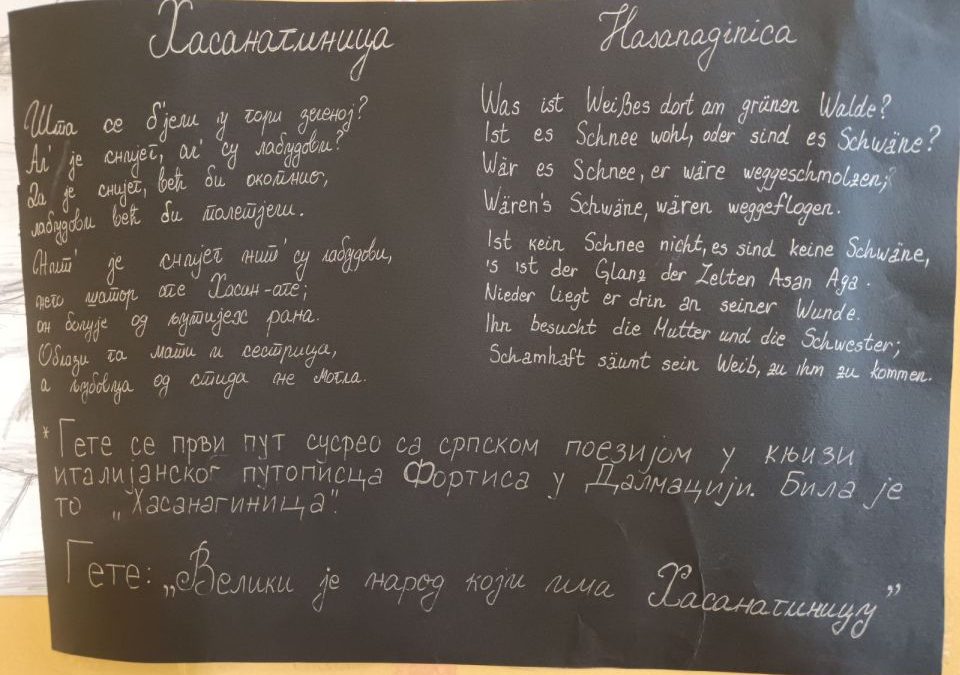 Хасанагиница
Шта се б'јели у гори зеленој?
Ал' је снијег, ал' су лабудови?
Да је снијег, већ би окопнио,
лабудови већ би полетјели.
Нит' је снијег нит' су лабудови,
него шатор аге Хасан-аге;
он болује од љутијех рана.
Облази га мати и сестрица,
а љубовца од стида не могла.
Hasanaginica
Was ist Weißes dort am grünen Walde?
Ist es Schnee wohl, oder sind es Schwäne?
Wär es Schnee, er wäre weggeschmolzen;
Wären's Schwäne, wären weggeflogen.
Ist kein Schnee nicht, es sind keine Schwäne,
's ist der Glanz der Zelten Asan Aga.
Nieder liegt er drin an seiner Wunde.
Ihn besucht die Mutter und die Schwester;
Schamhaft säumt sein Weib, zu ihm zu kommen.
*Гете се први пут сусрео са српском поезијом у књизи
италијанског путописца Фортиса у Далмацији. Била је
то „Хасанагиница".
Гете: „Велики је народ који има Хасанагиницу”